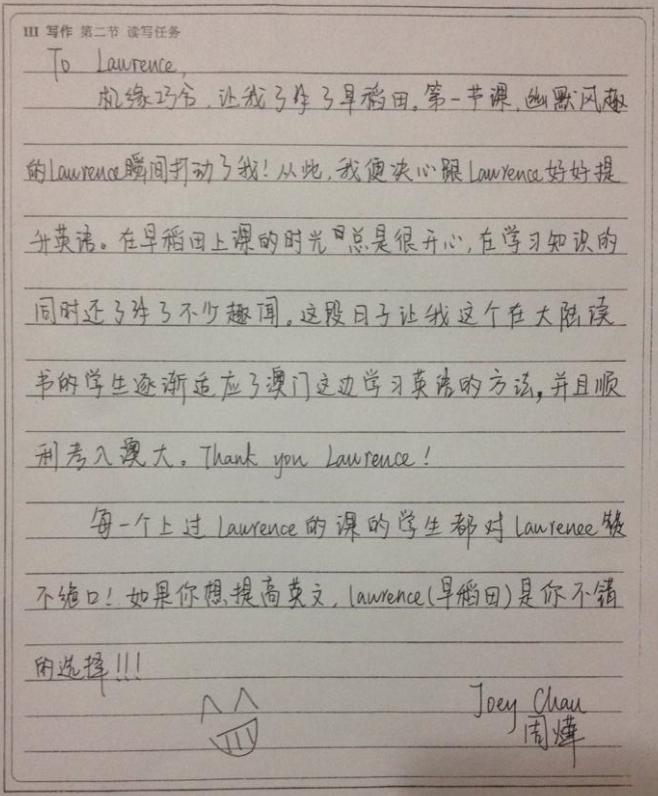 III 写作 第二节 读写任务
To Lawrence,
机缘巧合,让我了解了早稻田。第一节课,幽默风趣
的Lawrence瞬间打动了我!从此,我便决心跟Lawrence好好提
升英语。在早稻田上课的时光总是很开心,在学习知识的
同时还了解了不少趣闻。这段日子让我这个在大陆读
书的学生逐渐适应了澳门这边学习英语的方法,并且顺
利考入澳大。Thank you Lawrence!
每一个上过Lawrence的课的学生都对Lawrence赞
不绝口!如果你想提高英文,Lawrence(早稻田)是你不错
的选择!!!
Joey Chau
周烨